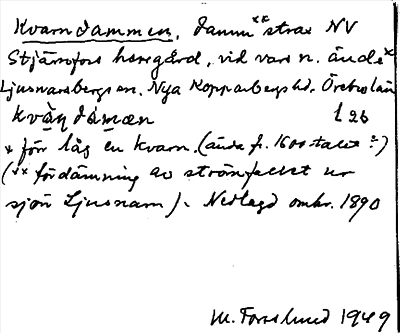 Kvarndammen, damm** strax NV
Stjärnfors herrgård, vid vars n. ände*
Ljusnarsbergs sn. Nya Kopparbergs hd. Örebro län
kvàṇ dámæn 126
* förr låg en kvarn. (ända fr. 1600-talet?)
(** fördämning av strömfallet ur
sjön Ljusnaren). Nedlagd omkr. 1890
M. Forslund 1949